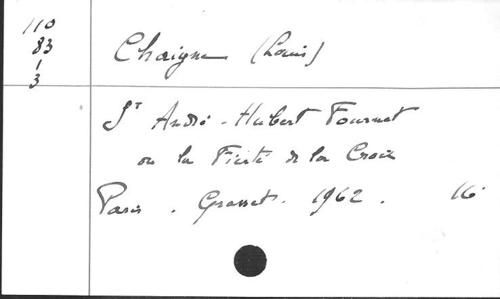 110
83
1
3
Chaigne (Louis)
St André-Hubert Fournet
ou la Fierté de la Croix
Paris. Grasset. 1962. 16°